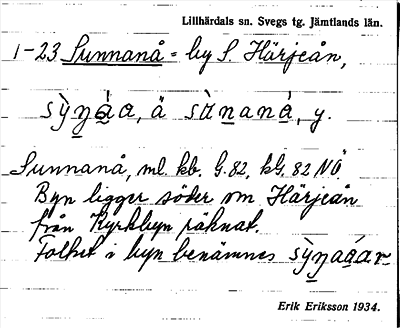 Lillhärdals sn. Svegs tg. Jämtlands län.
1-23 Sunnanå = by S. Härjeån,
sỳn̲à̲a, ä sùn̲anà̲, y.
Sunnanå, ml. kb. G. 82, kG. 82 NÖ
Byn ligger söder om Härjeån
från Kyrkbyn räknat.
Folket i byn benämnes sỳn̲a̲ar
Erik Eriksson 1934.